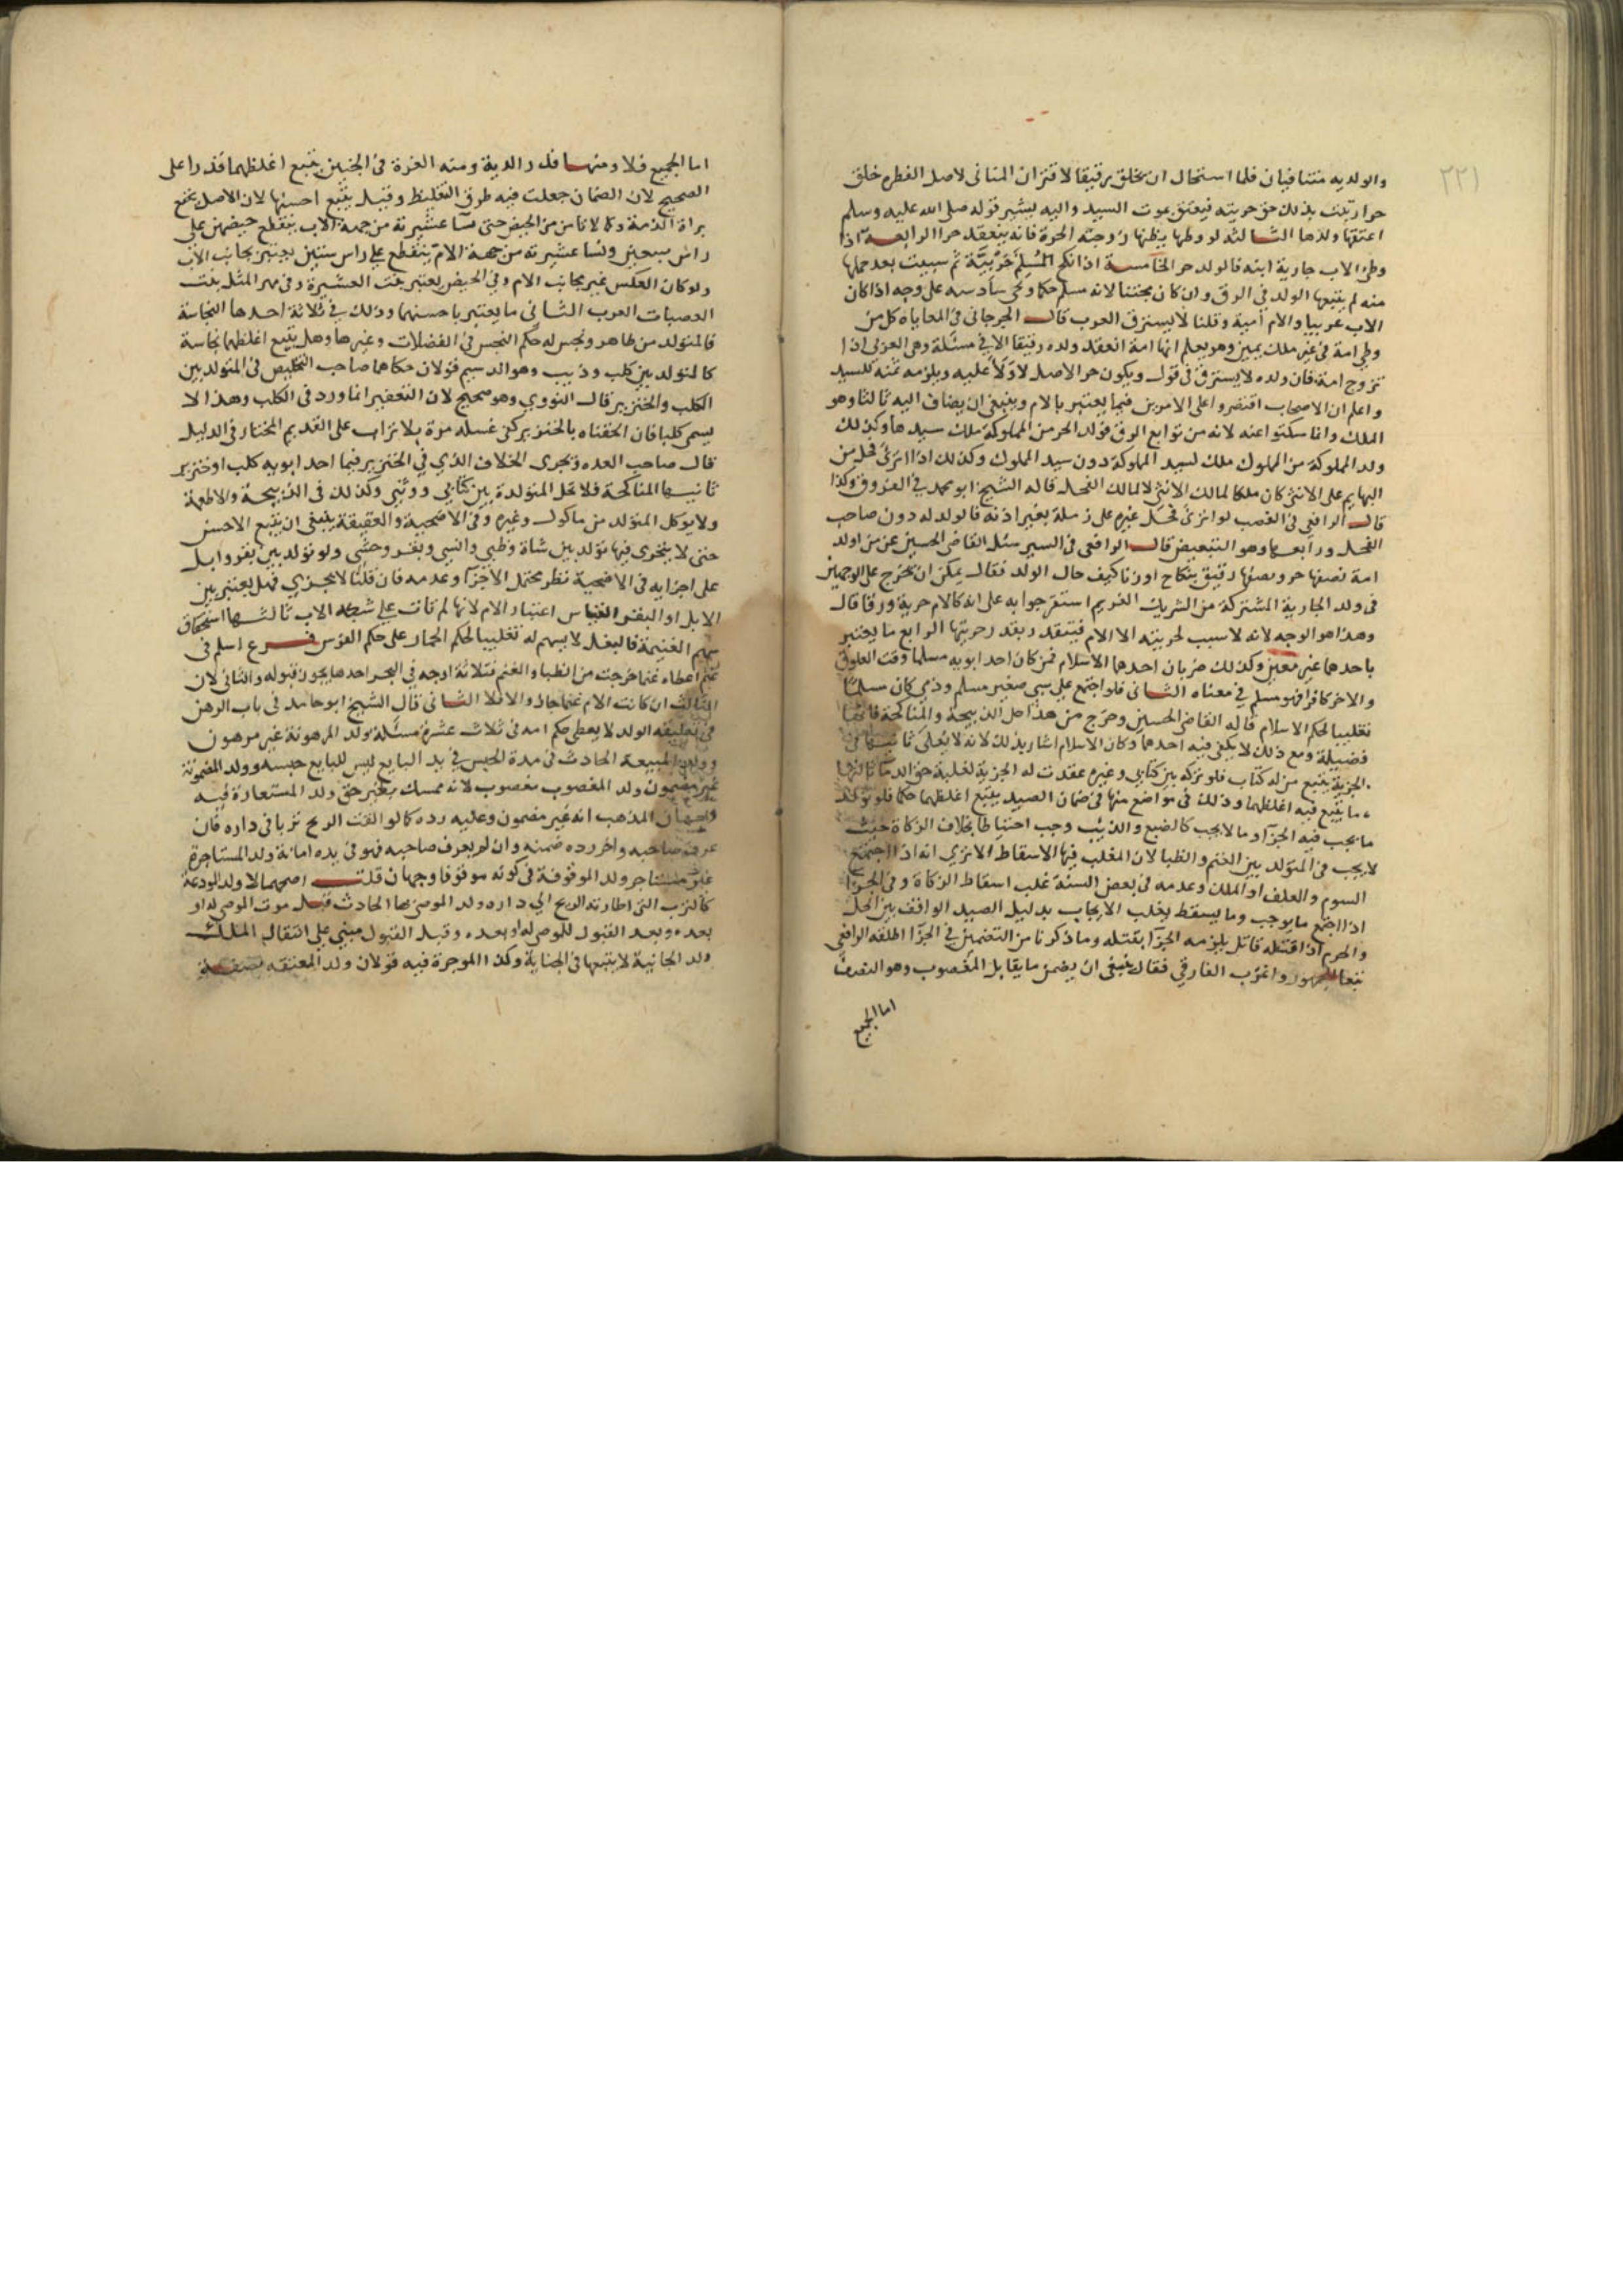 ٢٢١
والولديه متنافيان فلما استحال ان يخلق رقيقا لاقتران المنافى لاصل الفطره خلق
حرا وثبت بذلك حق حريته فيعتق بموت السيد واليه يشير قوله صلى الله عليه وسلم
اعتقها ولدها الثالثه لو وطيها يظنها زوجته الحرة فانه ينعقد حرا الرابعة اذا
وطئ الاب جارية ابنه فالولد حر الخامسة اذا نكح المسلم حربية ثم سبيت بعد حملها
منه لم يتبعها الولد في الرق وان كان مجتنا لانه مسلم حكما وحكى سادسه على وجه اذا كان
الاب عربيا والام امية وقلنا لا يسترق العرب قال الجرجاني في المعاياة كل من
وطئ امة في غير ملك يمين وهو يعلم انها امة انعقد ولده رقيقا الا في مسئلة وهى العربى اذا
تزوج امة فان ولده لا يسترق في قول ويكون حر الاصل لا ولاء عليه ويلزمه ثمنه للسيد
واعلم ان الاصحاب اقتصروا على الامرين فيما يعتبر بالام وينبغى ان يضاف اليه ثالثا وهو
الملك وانما سكتوا عنه لانه من توابع الرق فولد الحر من المملوكة ملك سيدها وكذلك
ولد المملوكة من المملوك ملك لسيد المملوكة دون سيد المملوك وكذلك اذا انزى فحل من
البهايم على الانثى كان ملكا لمالك الانثى لا لمالك الفحل قاله الشيخ ابو محمد في الفروق وكذا
قال الرافعي في الغصب لو انزى فحل غيره على رملة بغير اذنه فالولد له دون صاحب
الفحل ورابعها وهو التبعيض قال الرافعي في السير سئل القاضى الحسين عن من اولد
امة نصفها حر ونصفها رقيق بنكاح او زنا كيف حال الولد فقال يمكن ان يخرج على الوجهين
فى ولد الجارية المشتركة من الشريك الغريم استقر جوابه على انه كالام حرية ورقا قال
وهذا هو الوجه لانه لا سبب لحريته الا الام فيتقدر بقدر حريتها الرابع ما يعتبر
باحدهما غير معين وكذلك ضربان احدهما الاسلام فمن كان احد ابويه مسلما وقت العلوق
والاخر كافرا فهو مسلم في معناه الثاني فلو اجتمع على سبي صغير مسلم وذمي كان مسلما
تغليبا لحكم الاسلام قاله القاضى الحسين وخرج من هذا حل الذبيحة والمناكحة
فضيلة ومع ذلك لا يكفي فيه احدهما وكان الاسلام اشار بذلك لانه لا يعلى ثانيها في
الجزية يتبع من له كتاب فلو تركه بين كتابي وغيره عقدت له الجزية لغلبة حق الدما ثالثها
ما يتبع فيه اغلظهما وذلك في مواضع منها في ضمان الصيد يتبع اغلظهما حكما فلو تولد
ما يجب فيه الجزآ وما لا يجب كالضبع والذئب وجب احتياطا بخلاف الزكاة حيث
لا يجب في المتولد بين الغنم والظبا لان المغلب فيها الاسقاط الا ترى انه اذا اجتمع
السوم والعلف او الملك وعدمه في بعض السنة غلب اسقاط الزكاة وفى الجزآ
اذا اجتمع ما يوجب وما يسقط يغلب الايجاب بدليل الصيد الواقف بين الحل
والحرم اذا قتله قاتل يلزمه الجزآ بقتله وما ذكرنا من التضمين في الجزآ اطلقه الرافعى
تبعا للجمهور واغرب الفارقي فقال ينبغى ان يضمن ما يقابل المغصوب وهو النصف
اما الجميع
اما الجميع فلا ومنها قدر الدية ومنه الغرة في الجنين يتبع اغلظهما قدرا على
الصحيح لان الضمان جعلت فيه طرق التغليظ وقيل يتبع احسنها لان الاصل
براة الذمة وكما لا تأمن من الحيض حتى نسآ عشيرته من جهة الاب ينقطع حيضهن على
راس سبعين ونسا عشيرته من جهة الام ينقطع على راس ستين يعتبر بجانب الاب
ولو كان العكس غير بجانب الام وفي الحيض يعتبر بنت العشيرة وفى مهر المثل بنت
العصبات العرب الثاني ما يعتبر باحسنهما وذلك في ثلاثة احدها النجاسة
فالمتولد من طاهر ونجس له حكم النجس في الفضلات وغيرها وهل يتبع اغلظهما نجاسة
كالمتولد بين كلب وذيب وهو الدسيم قولان حكاهما صاحب التلخيص في المتولد بين
الكلب والخنزير قال النووي وهو صحيح لان التعفير انما ورد في الكلب وهذا لا
يسمى كلبا فان الحقناه بالخنزير كفى غسله مرة بلا تراب على القديم المختار في الدليل
قال صاحب العده ويجرى الخلاف الذي في الخنزير فيما احد ابويه كلب او خنزير
ثانيها المناكحة فلا تحل المتولدة بين كتابي ووثني وكذلك في الذبيحة والاطعمة
ولا يوكل المتولد من ماكول وغيره وفى الاضحية والعقيقة ينبغى ان يتبع الاحسن
حتى لا يجزى فيها تولد بين شاة وظبي وانسي وبقر وحشي ولو تولد بين بقر وابل
على اجزايه في الاضحية نظر محتمل الاجزآ وعدمه فان قلنا لا يجزي فهل يعتبر بين
الابل او البقر القياس اعتبار الام لانها لم تات على شبه الاب ثالثها استحقاق
سهم الغنيمة فالبغل لا يسهم له تغليبا لحكم الحمار على حكم الفرس فرع اسلم في
غنم اعطاه غنما خرجت من الظباء والغنم فثلاثة اوجه في البحر احدها يجوز قبوله والثاني لا
الثالث ان كانت الام غنما جاز والا فلا الثاني قال الشيخ ابو حامد فى باب الرهن
في تعليقه الولد لا يعطى حكم امه في ثلاث عشرة مسئلة ولد المرهونة غير مرهون
وولد المبيعة الحادث في مدة الحبس في يد البايع ليس للبايع حبسه وولد المضمونة
غير مضمون ولد المغصوب مغصوب لانه ممسك بغير حق ولد المستعارة فيه
وجهان المذهب انه غير مضمون وعليه رده كما لو القت الريح ثوبا في داره فان
عرف صاحبه واخر رده ضمنه وان لم يعرف صاحبه فهو في يده امانة ولد المستاجرة
غير مستاجر ولد الموقوفة في كونه موقوفا وجهان قلت اصحهما لا ولد الوديعة
كالثوب التى اطارته الريح الى داره ولد الموصى بها الحادث قبل موت الموصى له او
بعده وبعد القبول للموصى له وبعده وقبل القبول مبني على انتقال الملك
ولد الجانية لا يتبعها في الجناية وكذا الموجرة فيه قولان ولد المعتقه بصفة